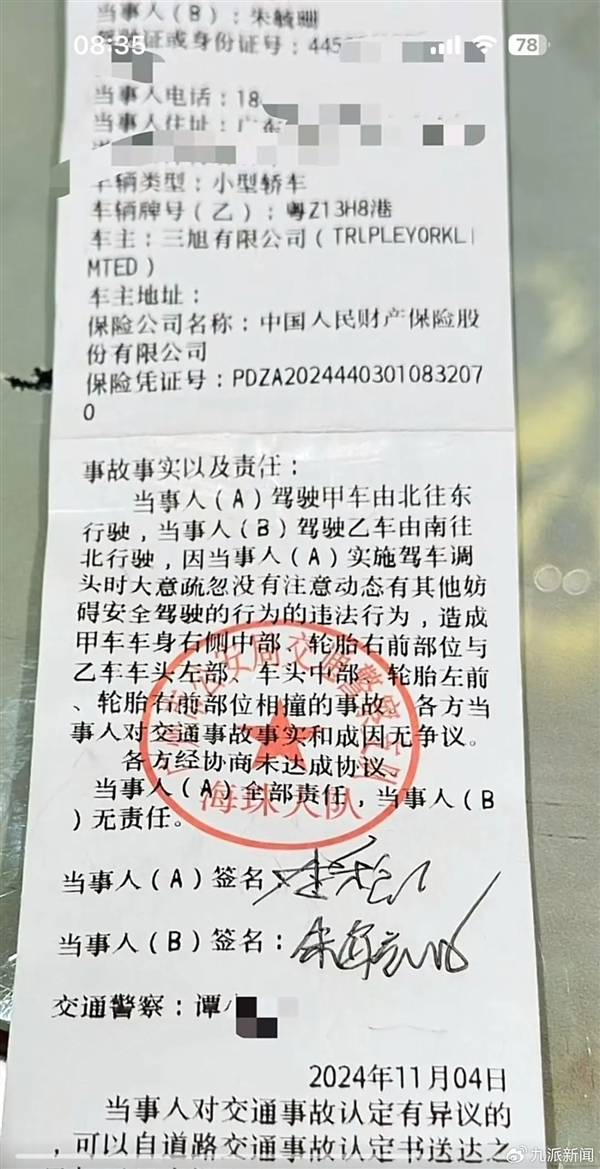 当事人(B):朱毓珊
08:35
78
证或身份证号:445
当事人电话:18
当事人住址:广东
车辆类型:小型轿车
车辆牌号(乙):粤Z13H8港
车主:三旭有限公司(TRLPLEYORKLI
MTED)
车主地址:
保险公司名称:中国人民财产保险股
份有限公司
保险凭证号:PDZA2024440301083207
0
事故事实以及责任:
当事人(A)驾驶甲车由北往东
行驶,当事人(B)驾驶乙车由南往
北行驶,因当事人(A)实施驾车调
头时大意疏忽没有注意动态有其他妨
碍安全驾驶的行为的违法行为,造成
甲车车身右侧中部、轮胎右前部位与
乙车车头左部、车头中部、轮胎左前
、轮胎右前部位相撞的事故。各方当
事人对交通事故事实和成因无争议。
各方经协商未达成协议。
当事人(A)全部责任,当事人(B
)无责任。
公安局交通警察支队
海珠大队
当事人(A)签名:
当事人(B)签名:
交通警察:谭小
2024年11月04日
当事人对交通事故认定有异议的
,可以自道路交通事故认定书送达之
九派新闻